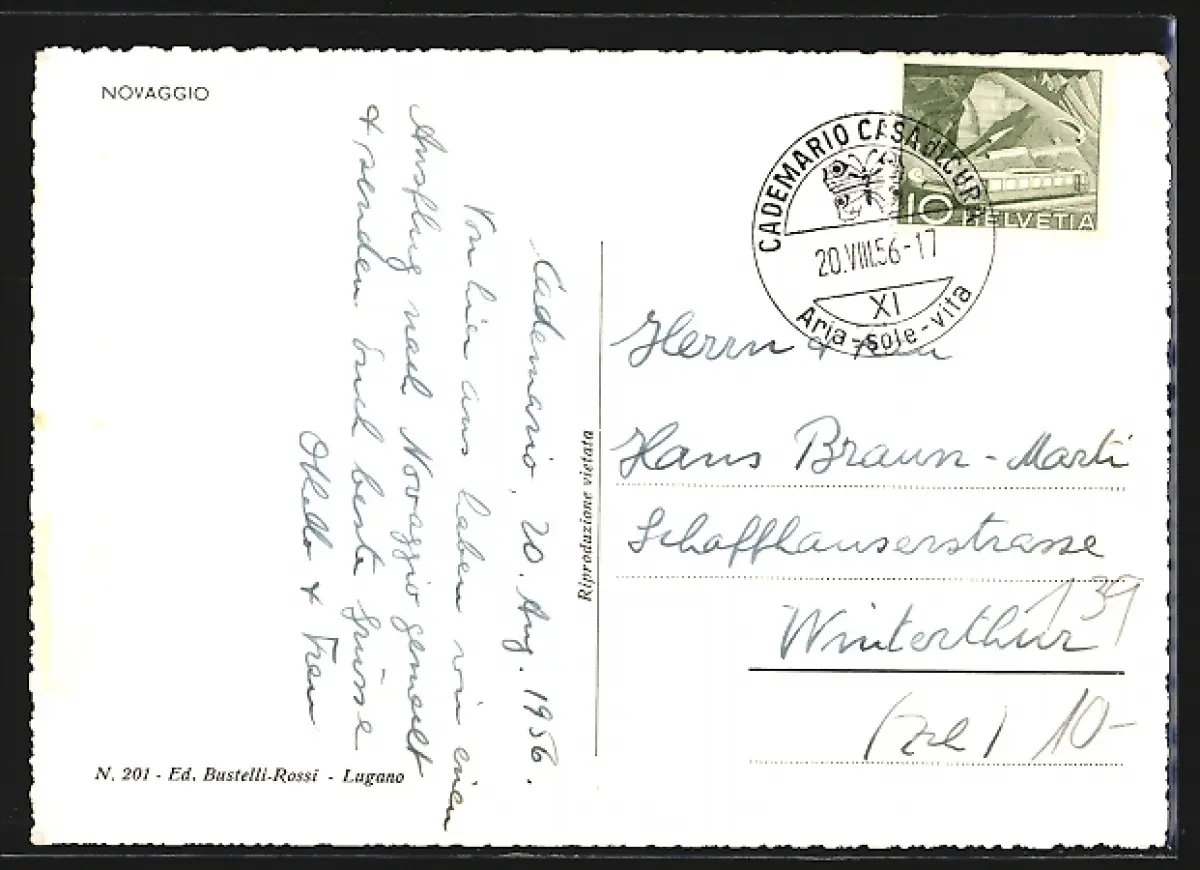 NOVAGGIO
Cademario, 20. Aug. 1956.
Von hier aus haben wir einen
Ausflug nach Novaggio gemacht
& senden Euch beste Grüsse
Othello &
N. 201 - Ed. Bustelli-Rossi - Lugano
Riproduzione vietata
CADEMARIO CASA di CURA
20.VIII.56-17
XI
Aria-sole-vita
10 HELVETIA
Herrn & Frau
Hans Braun - Marti
Schaffhauserstrasse
139
Winterthur
(Zch) 10-